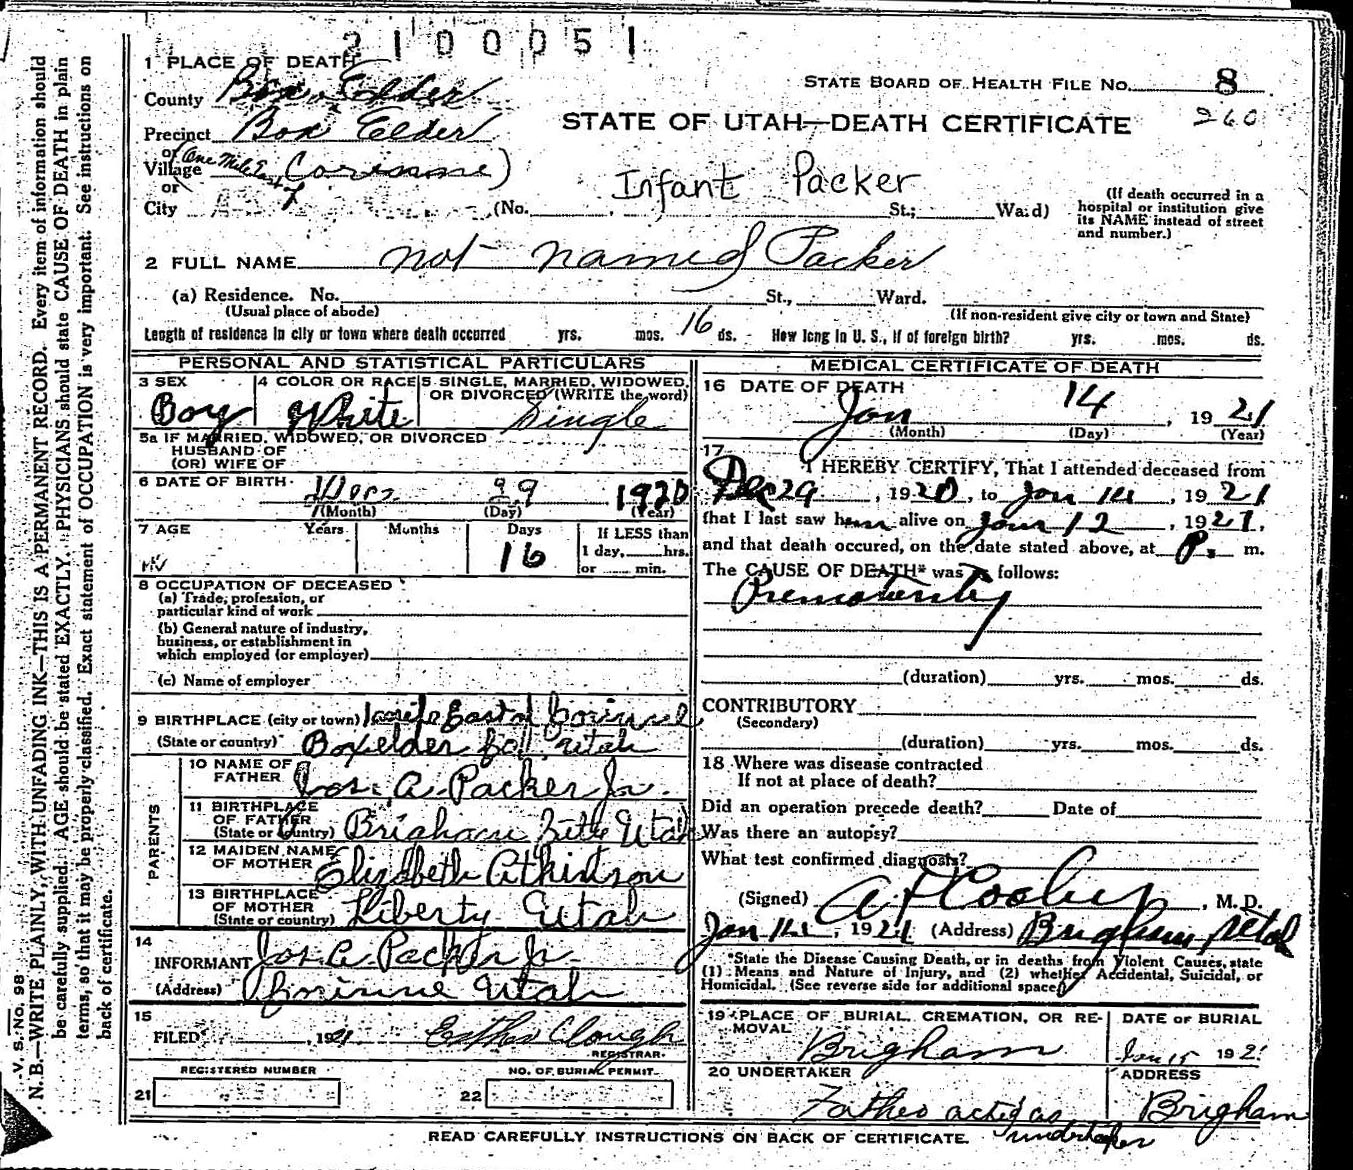 2100051
1 PLACE OF DEATH
STATE BOARD OF HEALTH FILE NO. 8
County Box Elder
260
Precinct Box Elder
STATE OF UTAH—DEATH CERTIFICATE
or
Village (One Mile East of Corinne)
or
Infant Packer
City (No. St.; Ward)
(If death occurred in a
hospital or institution give
its NAME instead of street
and number.)
2 FULL NAME not named Packer
(a) Residence. No. St., Ward.
(Usual place of abode)
(If non-resident give city or town and State)
Length of residence in city or town where death occurred yrs. mos. 16 ds. How long in U. S., if of foreign birth? yrs. mos. ds.
PERSONAL AND STATISTICAL PARTICULARS
3 SEX
Boy
4 COLOR OR RACE
White
5 SINGLE, MARRIED, WIDOWED,
OR DIVORCED (WRITE the word)
Single
5a IF MARRIED, WIDOWED, OR DIVORCED
HUSBAND OF
(OR) WIFE OF
6 DATE OF BIRTH
29 1920
(Month) (Day) (Year)
7 AGE Years Months Days
16
If LESS than
1 day, hrs.
or min.
8 OCCUPATION OF DECEASED
(a) Trade, profession, or
particular kind of work
(b) General nature of industry,
business, or establishment in
which employed (or employer)
(c) Name of employer
9 BIRTHPLACE (city or town) 1 mile East of Corinne
(State or country) Boxelder Co. Utah
PARENTS
10 NAME OF
FATHER Jos. A. Packer Jr.
11 BIRTHPLACE
OF FATHER
(State or country) Brigham City Utah
12 MAIDEN NAME
OF MOTHER Elizabeth Atkinson
13 BIRTHPLACE
OF MOTHER
(State or country) Liberty Utah
14
INFORMANT Jos. A. Packer Jr.
(Address) Corinne Utah
15
FILED , 1921 Clough
REGISTRAR
REGISTERED NUMBER
21
NO. OF BURIAL PERMIT
22
MEDICAL CERTIFICATE OF DEATH
16 DATE OF DEATH
Jan 14, 1921
(Month) (Day) (Year)
17
I HEREBY CERTIFY, That I attended deceased from
Dec 29, 1920, to Jan 14, 1921
that I last saw him alive on Jan 12, 1921,
and that death occured, on the date stated above, at P. m.
The CAUSE OF DEATH* was as follows:
Prematurity
(duration) yrs. mos. ds.
CONTRIBUTORY
(Secondary)
(duration) yrs. mos. ds.
18 Where was disease contracted
If not at place of death?
Did an operation precede death? Date of
Was there an autopsy?
What test confirmed diagnosis?
(Signed) , M. D.
Jan 14, 1921 (Address) Brigham, Utah
*State the Disease Causing Death, or in deaths from Violent Causes, state
(1) Means and Nature of Injury, and (2) whether Accidental, Suicidal, or
Homicidal. (See reverse side for additional space)
19 PLACE OF BURIAL, CREMATION, OR RE-
MOVAL
Brigham
DATE OF BURIAL
Jan 15 1921
20 UNDERTAKER
Father acted as
undertaker
ADDRESS
Brigham
READ CAREFULLY INSTRUCTIONS ON BACK OF CERTIFICATE.
V. S. NO. 98
N. B.—WRITE PLAINLY, WITH UNFADING INK—THIS IS A PERMANENT RECORD. Every item of information should
be carefully supplied. AGE should be stated EXACTLY. PHYSICIANS should state CAUSE OF DEATH in plain
terms, so that it may be properly classified. Exact statement of OCCUPATION is very important. See instructions on
back of certificate.